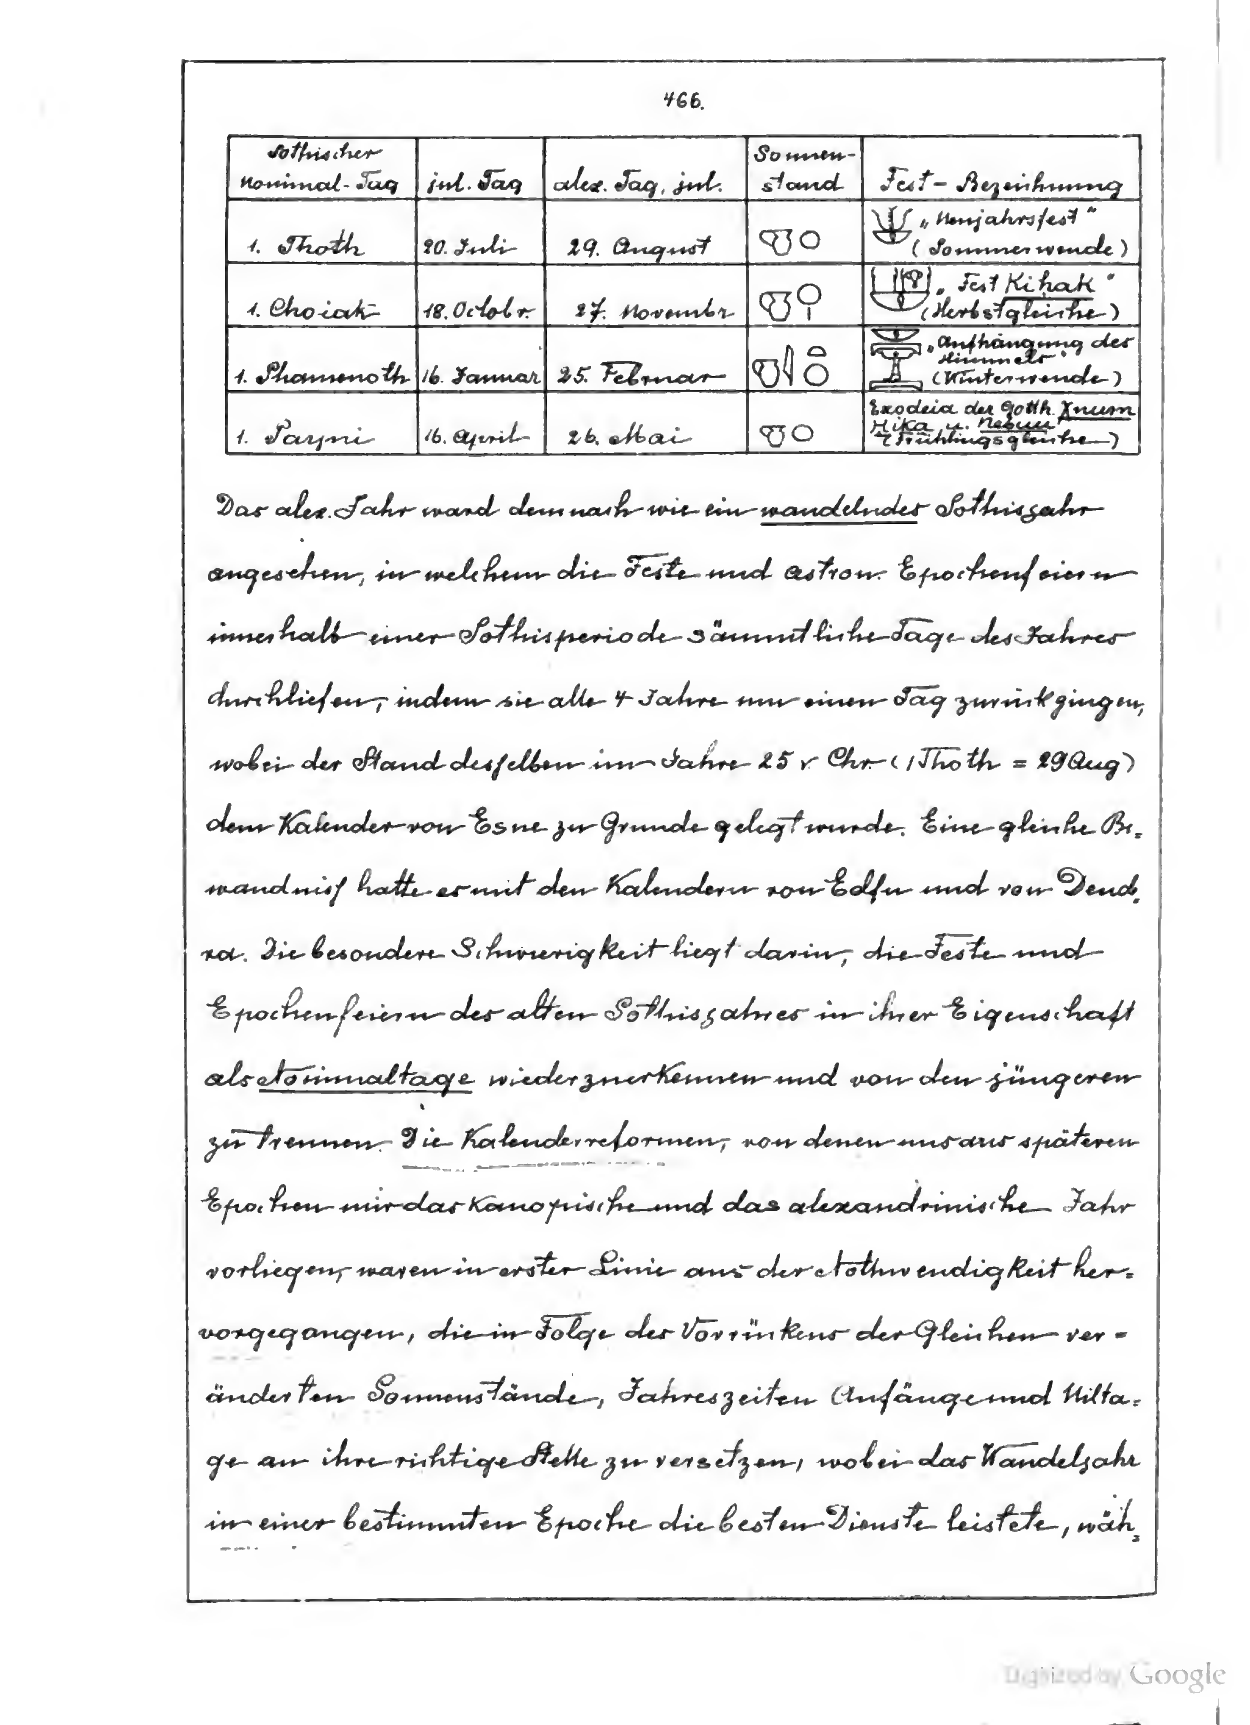 466.
Sothischer Nominal-Tag | jul. Tag | alex. Tag, jul. | Sonnen-stand | Fest-Bezeichnung
1. Thoth | 20. Juli | 29. August | „Neujahrsfest“ (Sommerwende)
1. Choiak | 18. Octobr. | 27. Novembr | „Fest Kihak“ (Herbstgleiche)
1. Phamenoth | 16. Januar | 25. Februar | „Aufhängung des Himmels“ (Winterwende)
1. Payni | 16. April | 26. Mai | Exodeia der Gotth. Xnum Hika u. Nebuu (Frühlingsgleiche)
Das alex. Jahr ward demnach wie ein wandelndes Sothisjahr
angesehen, in welchem die Feste und astron. Epochenfeiern
innerhalb einer Sothisperiode sämmtliche Tage des Jahres
durchliefen, indem sie alle 4 Jahre um einen Tag zurückgingen,
wobei der Stand desselben im Jahre 25 v. Chr. (1 Thoth = 29 Aug)
dem Kalender von Esne zu Grunde gelegt wurde. Eine gleiche Be=
wandniss hatte es mit den Kalendern von Edfu und von Dend=
ra. Die besondere Schwierigkeit liegt darin, die Feste und
Epochenfeiern des alten Sothisjahres in ihrer Eigenschaft
als Nominaltage wiederzuerkennen und von den jüngeren
zu trennen. Die Kalenderreformen, von denen uns aus späteren
Epochen nur das Kanopische und das alexandrinische Jahr
vorliegen, waren in erster Linie aus der Nothwendigkeit her=
vorgegangen, die in Folge des Vorrückens der Gleichen ver=
änderten Sonnenstände, Jahreszeiten Anfänge und Nilta=
ge an ihre richtige Stelle zu versetzen, wobei das Wandeljahr
in einer bestimmten Epoche die besten Dienste leistete, wäh=
Digitized by Google